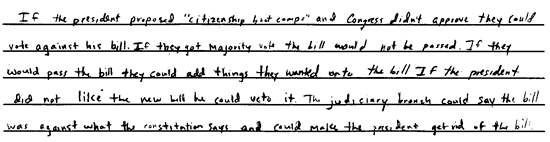 If the president proposed "citizenship boot camps" and Congress didn't approve they could
vote against his bill. If they got majority vote the bill would not be passed. If they
would pass the bill they could add things they wanted onto the bill If the president
did not like the new bill he could veto it The judiciary branch could say the bill
was against what the constitution says and could make the president get rid of the bill.